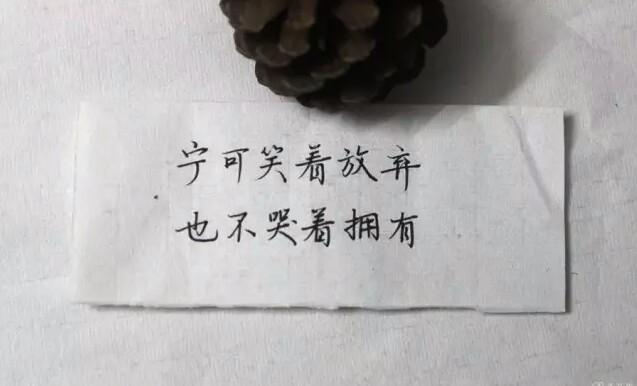 宁可笑着放弃
也不哭着拥有